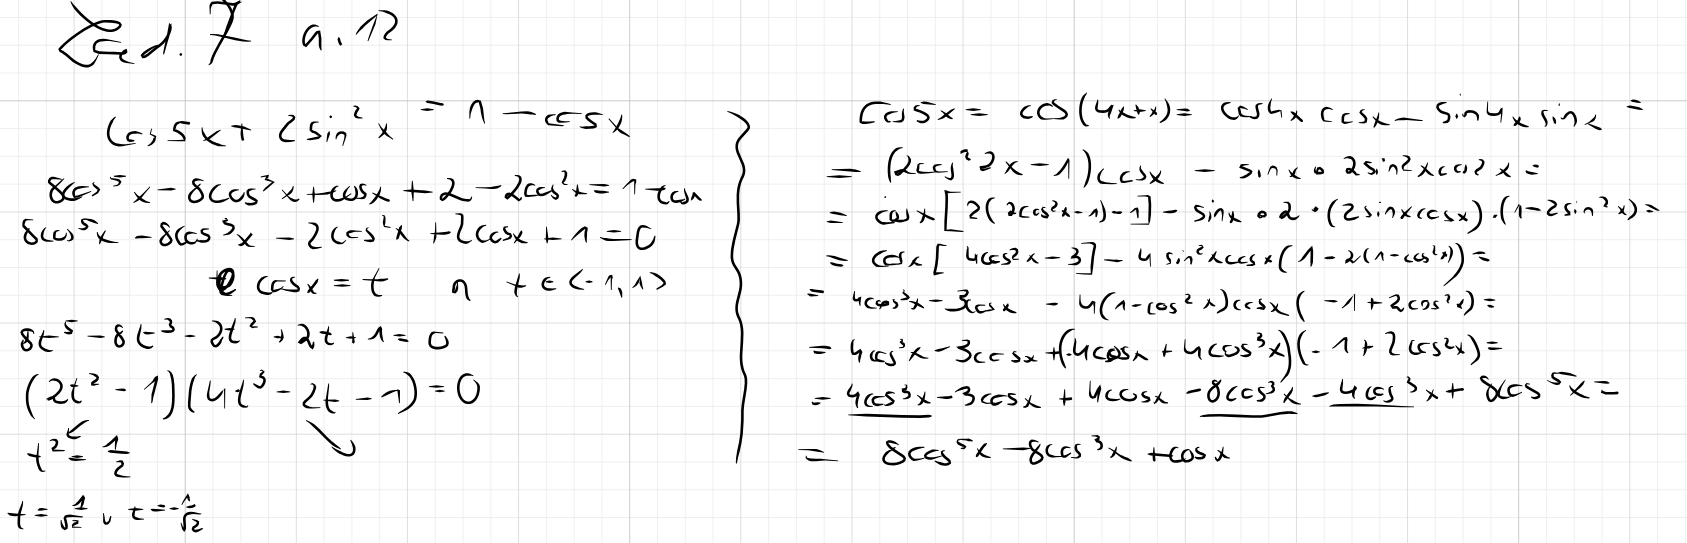 Zad. 7 a. 12
cos 5x + 2 sin² x = 1 - cos x
8cos⁵x - 8cos³x + cosx + 2 - 2cos²x = 1 - cosx
8cos⁵x - 8cos³x - 2cos²x + 2cosx + 1 = 0
cosx = t ∩ t ∈ <-1, 1>
8t⁵ - 8t³ - 2t² + 2t + 1 = 0
(2t² - 1)(4t³ - 2t - 1) = 0
t² = 1/2
t = 1/√2 ∪ t = -1/√2
cos5x = cos(4x+x) = cos4x cosx - sin4x sinx =
= (2cos²2x - 1)cosx - sinx • 2sin2xcos2x =
= cosx [2(2cos²x - 1) - 1] - sinx • 2 • (2sinxcosx) • (1 - 2sin²x) =
= cosx [4cos²x - 3] - 4 sin²xcosx (1 - 2(1 - cos²x)) =
= 4cos³x - 3cosx - 4(1 - cos²x)cosx (-1 + 2cos²x) =
= 4cos³x - 3cosx + (-4cosx + 4cos³x)(-1 + 2cos²x) =
= 4cos³x - 3cosx + 4cosx - 8cos³x - 4cos³x + 8cos⁵x =
= 8cos⁵x - 8cos³x + cosx